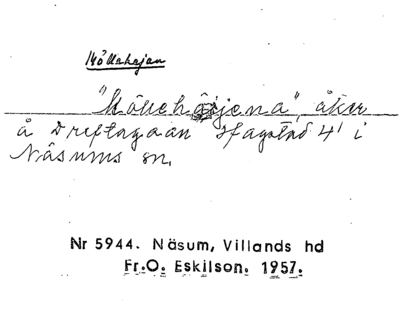 Möllehajan
"Möllehöjena", åker
å Driftagaan Ifagstad 4¹ i
Näsums sn.
Nr 5944. Näsum, Villands hd
Fr.O. Eskilson. 1957.